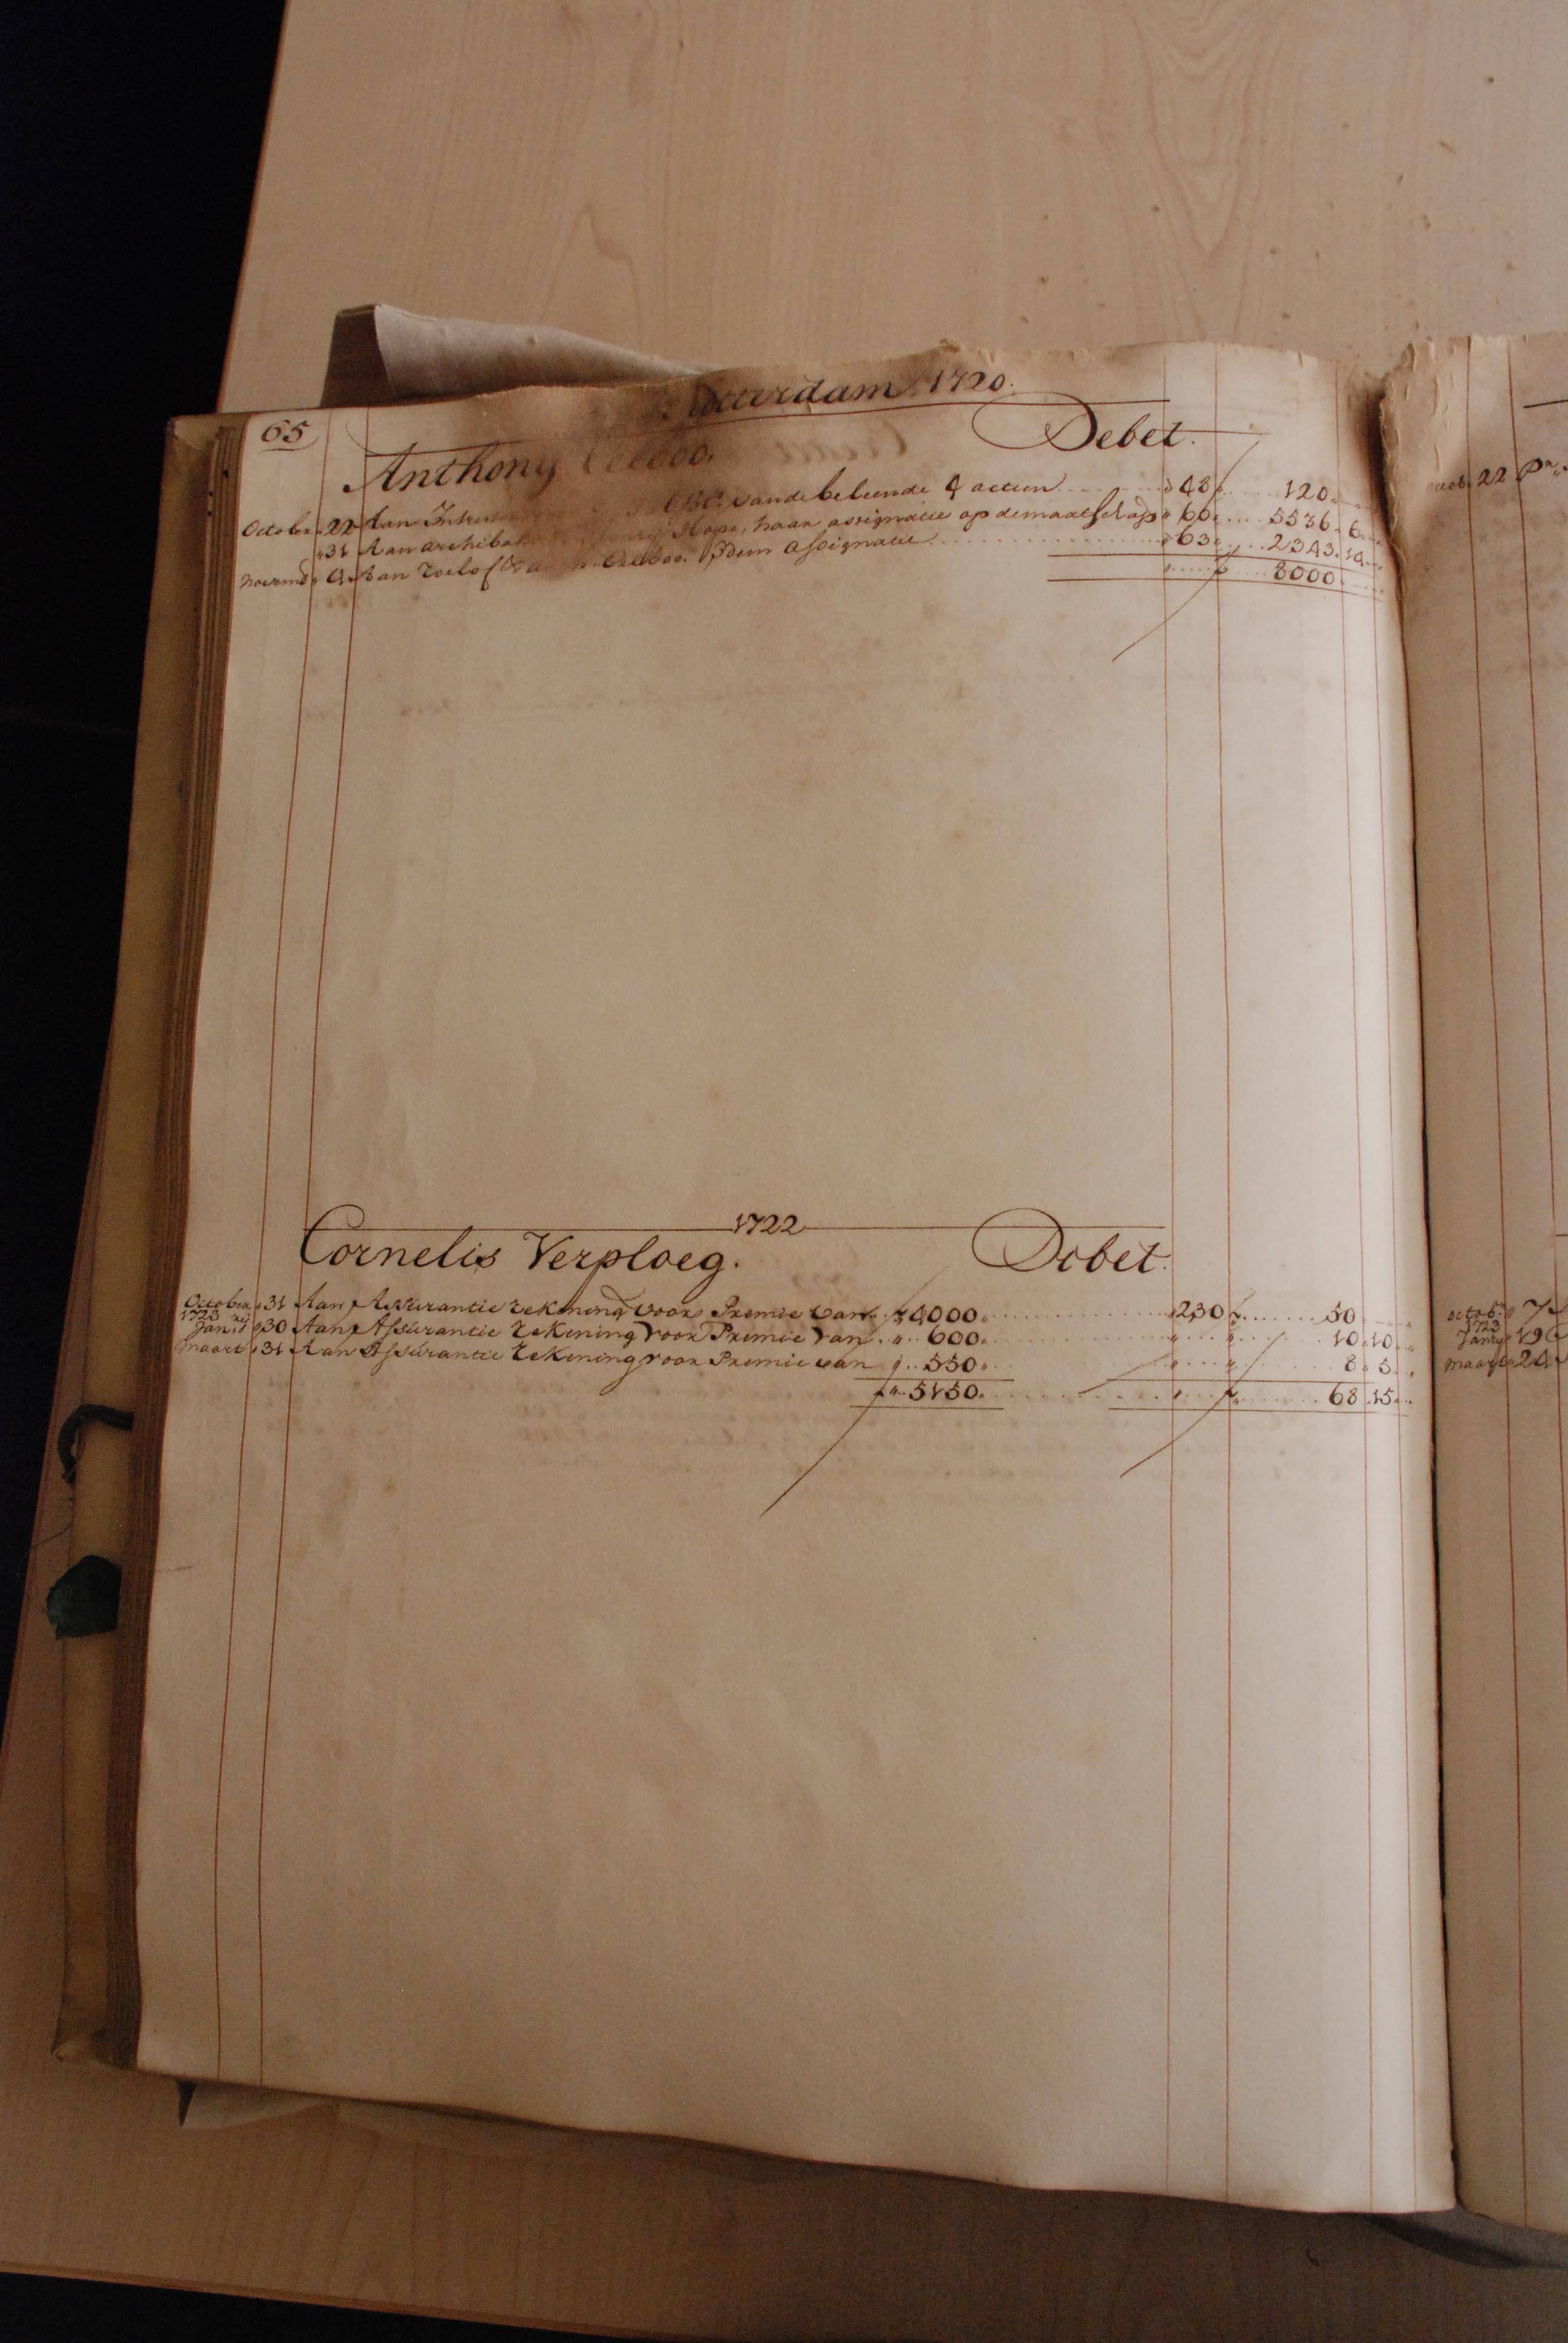 Rotterdam 1720.
65
Debet.
Anthony
October 22 Aan vande beleende 4 actien 48 120
31 Aan archibald Hope, haar assignatie op de maatschap 60 5536 6
novemb 4 Aan Roeloff Idem Assignatie 63 2343 14
8000
1722
Cornelis Verploeg. Debet.
October 31 Aan Assurantie rekening voor Premie van 4000 230 50
1723
Jan 30 Aan Assurantie Rekening voor Premie van 600 10 10
Maart 31 Aan Assurantie Rekening voor Premie van 550 8 5
5150 68 15
22 Pr
octob 7
1723
Janry 19
Maart 24